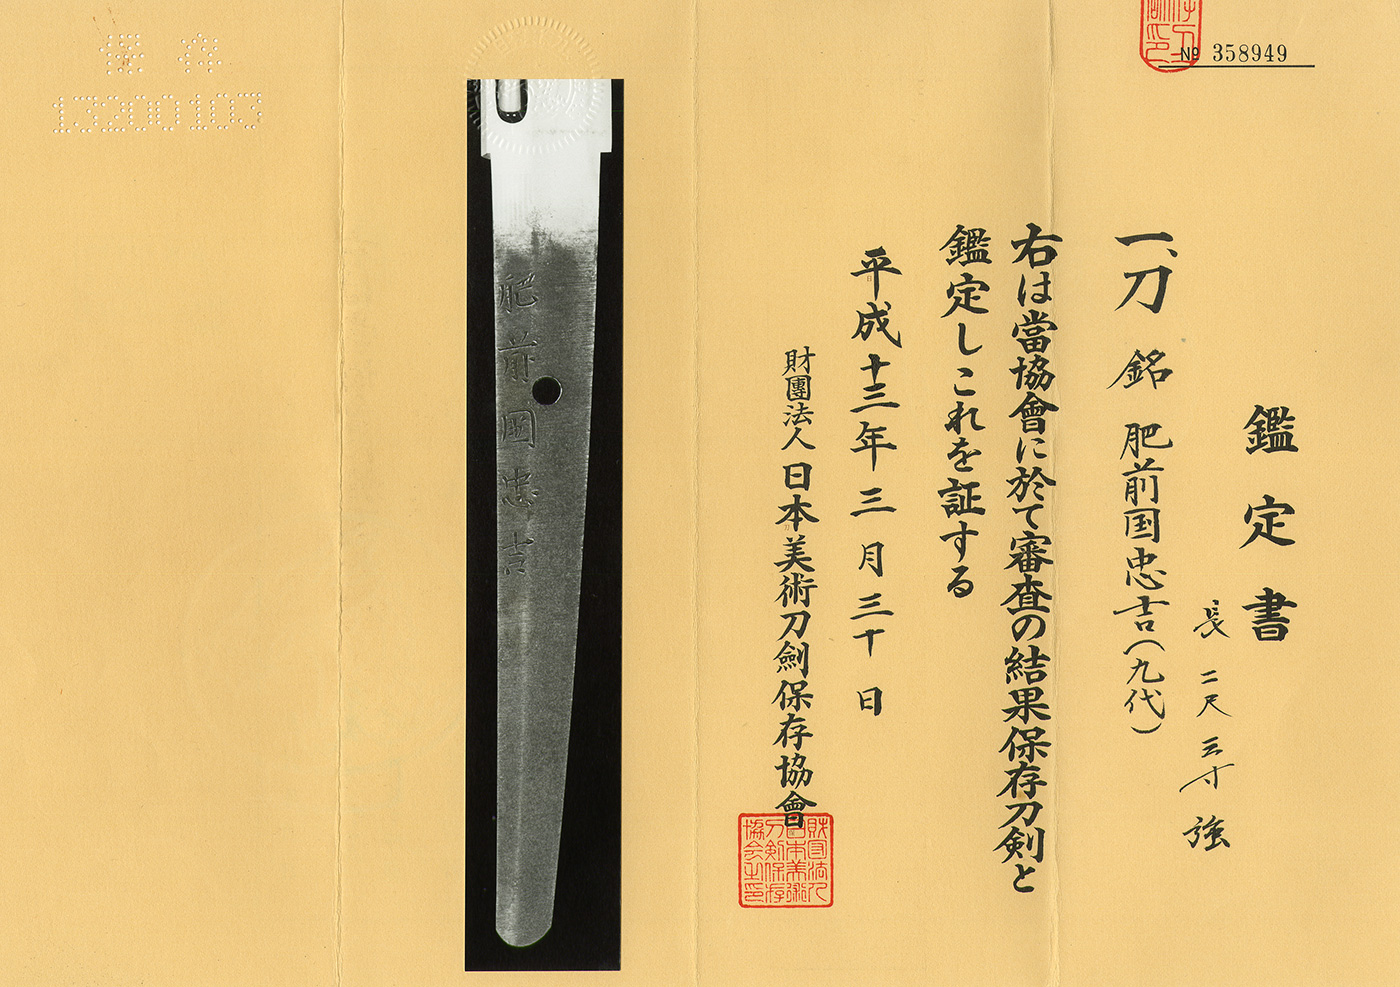 № 358949
鑑定書
一、刀 銘 肥前国忠吉(九代)
長 二尺三寸強
右は當協會に於て審査の結果保存刀剣と
鑑定しこれを証する
平成十三年三月三十日
財團法人日本美術刀劍保存協會
財団法人日本美術刀剣保存協会之印
肥前國忠吉
保存
13200103